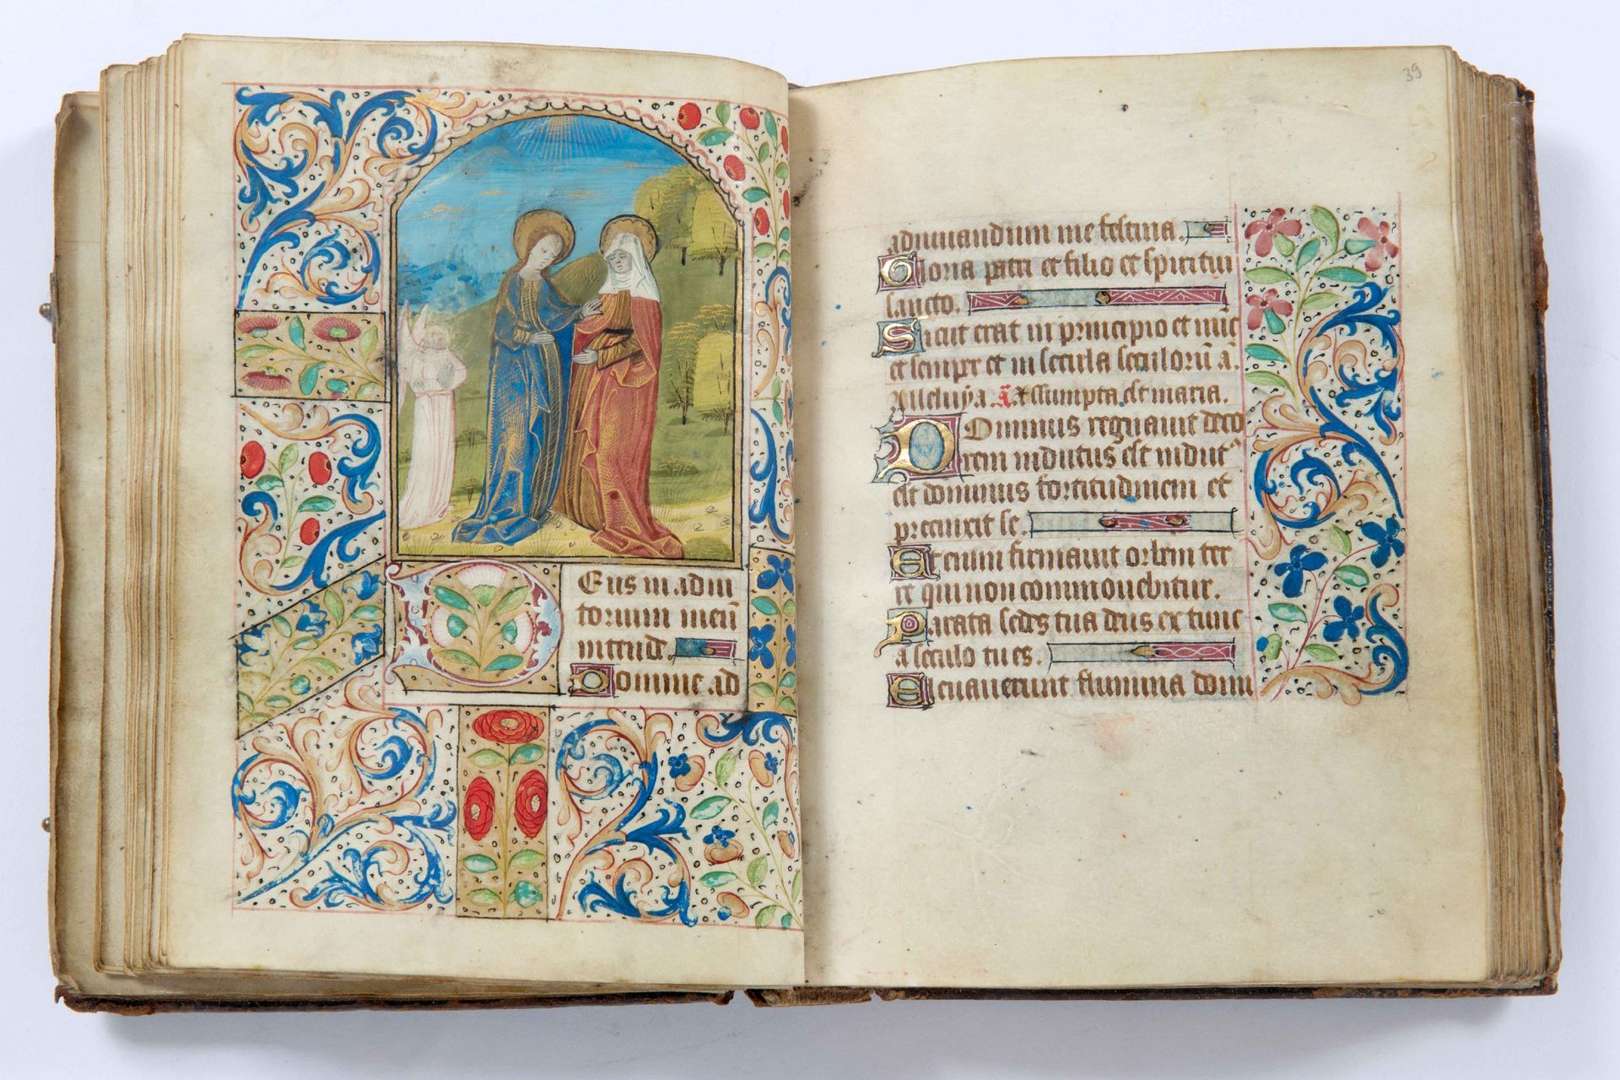 Deus in adiu
torium meū
intende.
Domine ad
39
adiuuandum me festina.
Gloria patri et filio et spiritui
sancto.
Sicut erat in principio et nūc
et semper et in secula seculorū a.
Alleluya. ā. Assumpta est maria.
Dominus regnauit deco
rem indutus est indut᷒
est dominus fortitudinem et
precinxit se.
Etenim firmauit orbem ter
re qui non commouebitur.
Parata sedes tua deus ex tunc
a seculo tu es.
Eleuauerunt flumina domi